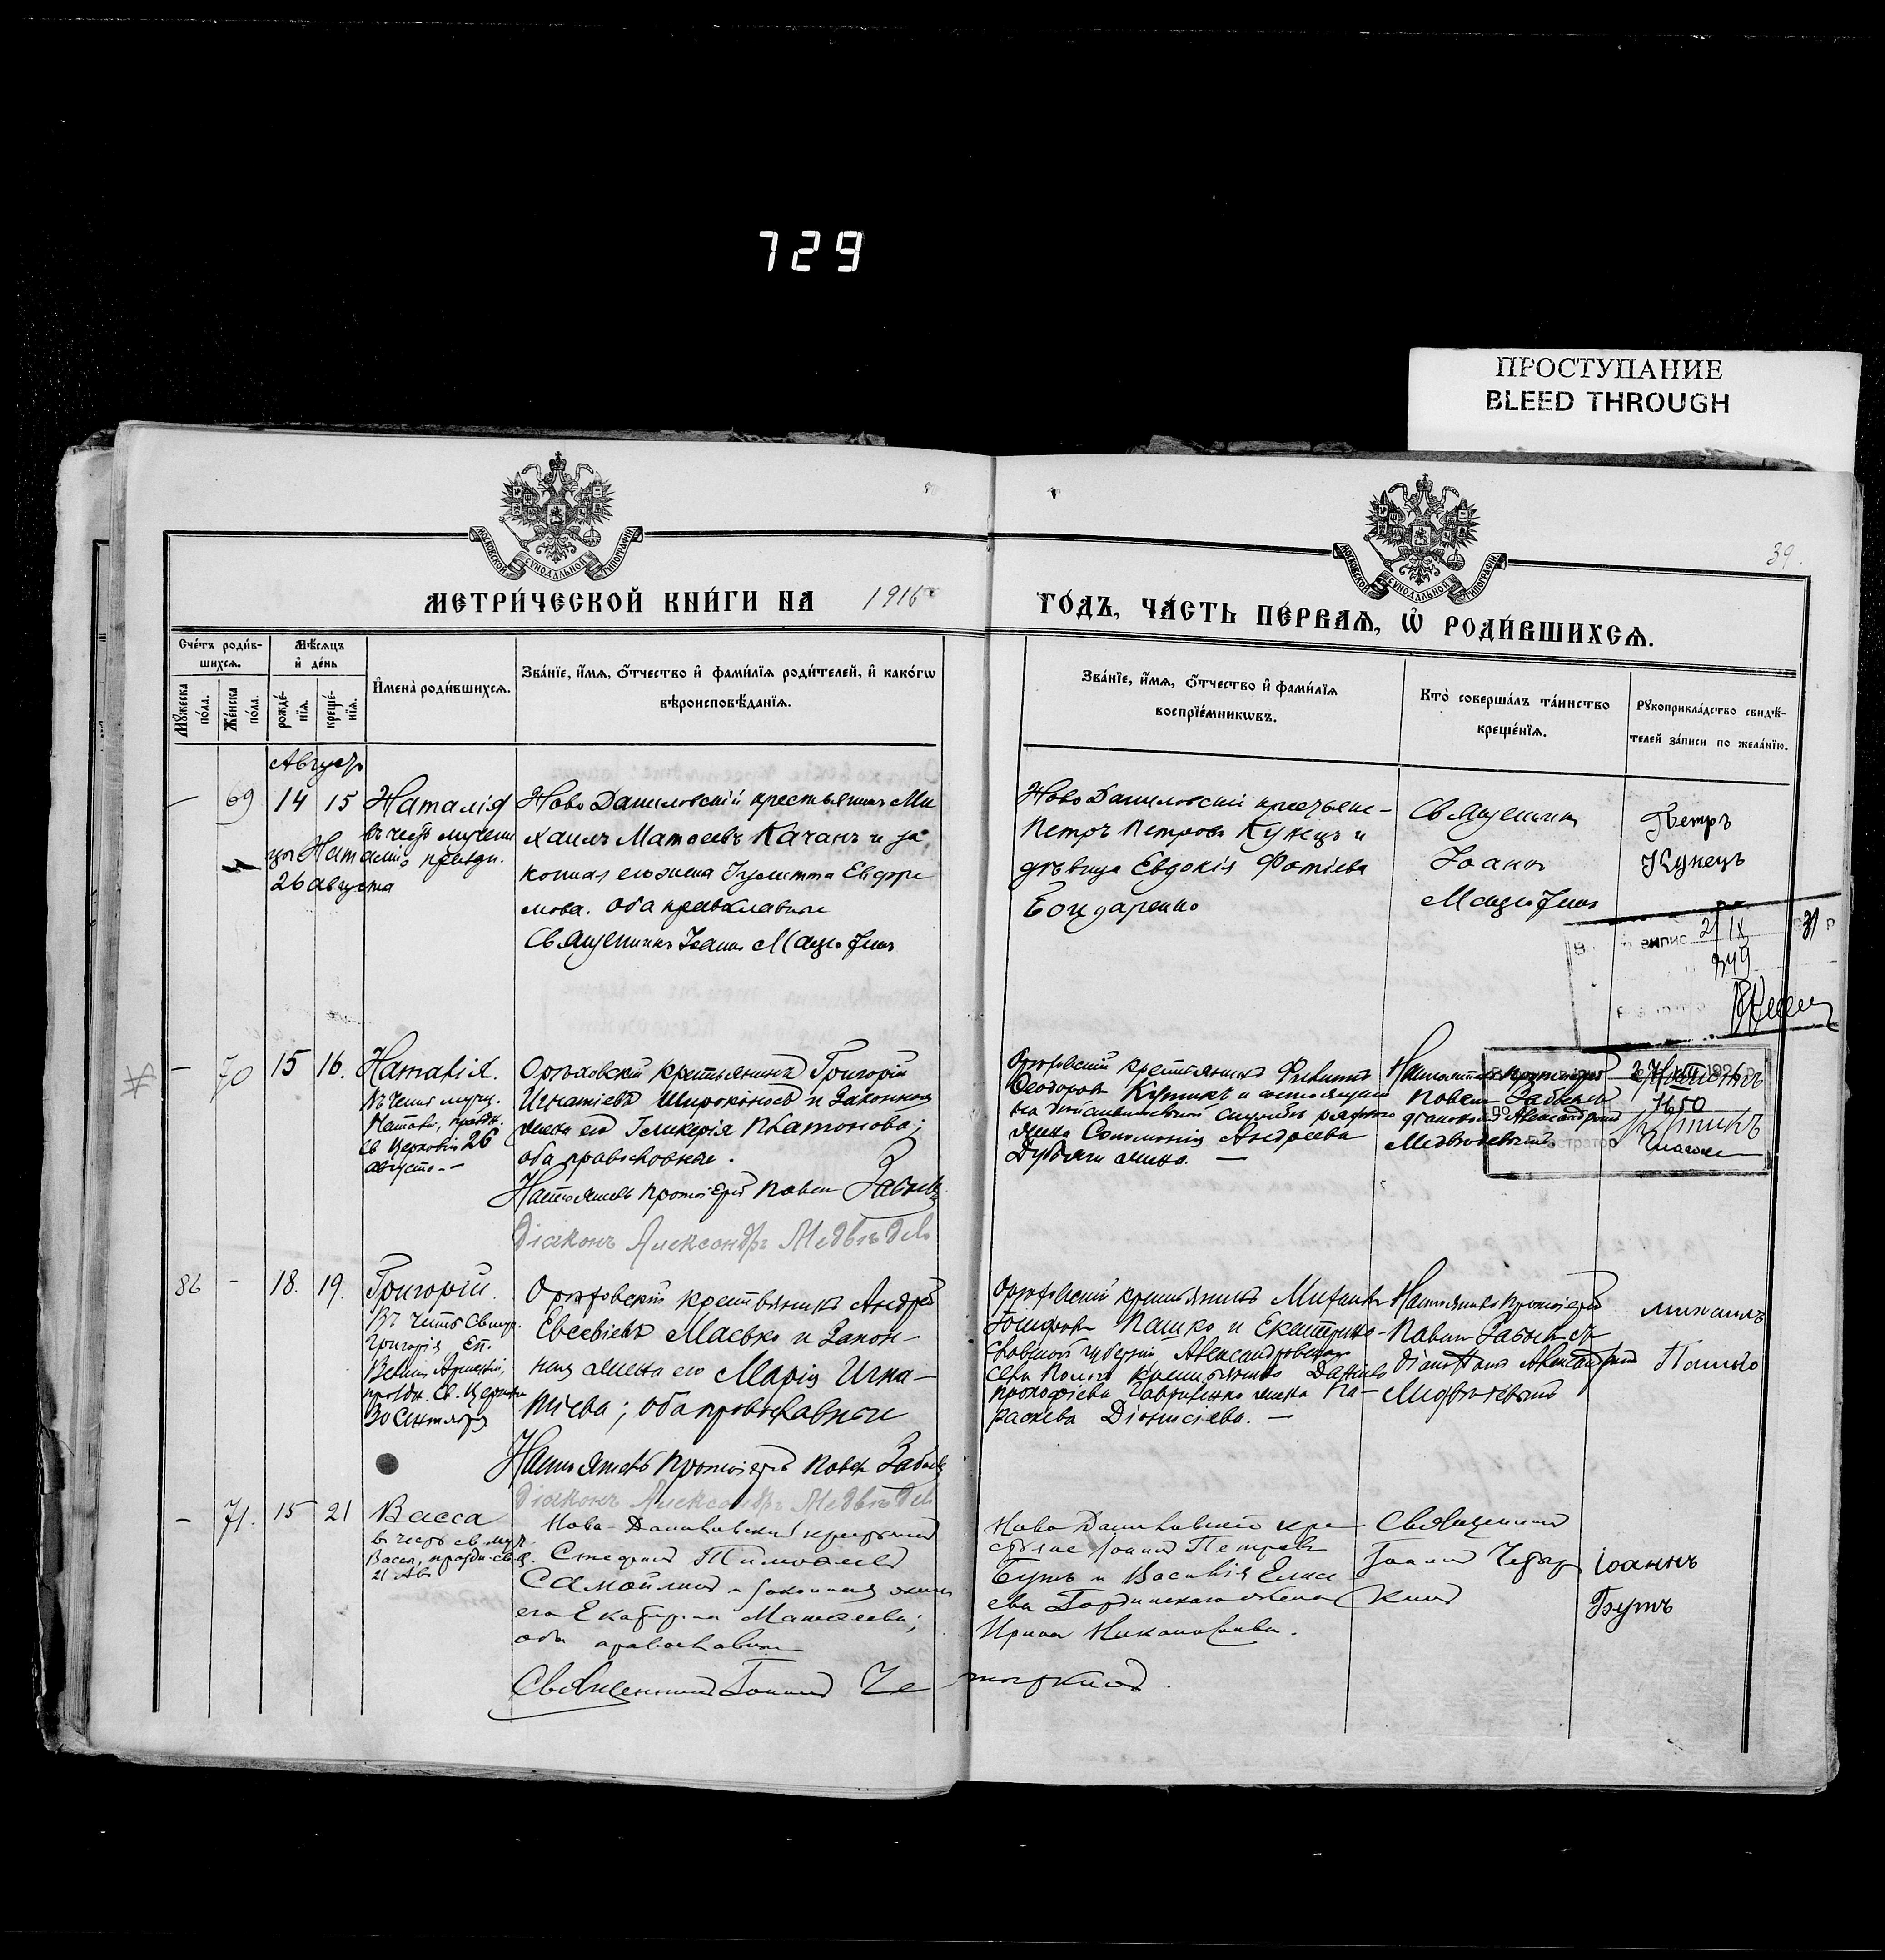 729
ПРОСТУПАНИЕ
BLEED THROUGH
МОСКОВСКОЙ СѴНОДАЛЬНОЙ ТИПОГРАФІИ
МОСКОВСКОЙ СѴНОДАЛЬНОЙ ТИПОГРАФІИ
39.
МЕТРИ́ЧЕСКОЙ КНИ́ГИ НА 1916
ГО́ДЪ, ЧА́СТЬ ПЕ́РВАѦ, Ѡ РОДИ́ВШИХСѦ.
Сче́тъ роди́в-
шихсѧ.
Мꙋ́жеска
по́ла.
Же́нска
по́ла.
Мѣ́сѧцъ
и҆ де́нь
рожде́-
нїѧ.
креще́-
нїѧ.
И҆мена̀ роди́вшихсѧ.
Зва́нїе, и҆́мѧ, ѻ҆́тчество и҆ фами́лїѧ роди́телей, и҆ како́гѡ
вѣроисповѣ́данїѧ.
Зва́нїе, и҆́мѧ, ѻ҆́тчество и҆ фами́лїѧ
воспрїе́мникѡвъ.
Кто̀ соверша́лъ та́инство
креще́нїѧ.
Рꙋкоприкла́дство свидѣ́-
телей за́писи по жела́нїю.
Августъ
— 69 14 15 Наталія
въ честь мучени
цы Наталіи праздн.
26 августа
Ново Даниловскій крестьянинъ Ми
хаилъ Матѳеевъ Качанъ и за
конная его жена Іулитта Евфре
мова. Оба православные
Священникъ Іоаннъ
Ново Даниловскій крестьян-
Петръ Петровъ Кунецъ и
дѣвица Евдокія Фотіева
Бондаренко
Священникъ
Іоаннъ
Петръ
Кунецъ
випис 2/IX
349
— 70 15 16. Наталія.
Въ честь муч.
Наталіи, праздн.
Св. Церковію 26
августа. —
Орѣховскій крестьянинъ Григорій
Игнатіевъ Широконосъ и законная
жена его Гликерія Платонова;
оба православные.
Настоятель протоіерей Павелъ
Діаконъ Александръ Медвѣдевъ
Орѣховскій крестьянинъ Филиппъ
Ѳеодоровъ Купчикъ и состоящаго
на службѣ рядового
жена Соломонія Андреева
жена. —
Настоятель протоіерей
Павелъ
діакономъ Александромъ
Медвѣдевымъ
1650
82 — 18. 19. Григорій.
Въ честь Свящ.
Григорія Еп.
Великія Арменіи,
праздн. Св. Церковію
30 Сентября
Орѣховскій крестьянинъ Андрей
Евсевіевъ Масько и закон-
ная жена его Марія Игна-
тіева; оба православные
Настоятель протоіерей Павелъ
Діаконъ Александръ Медвѣдевъ
Орѣховскій крестьянинъ Михаилъ
Іосифовъ Пашко и Екатерино-
славской губерніи Александровскаго
крестьянина Даніила
Прокофіева Гавриленко жена Па-
раскева Діонисіева. —
Настоятель протоіерей
Павелъ
діакономъ Александромъ
Медвѣдевымъ
Михаилъ
Пашко
— 71. 15 21 Васса
въ честь св. муч.
Вассы, праздн. св. ц.
21 Авг.
Ново-Даниловскій крестьянинъ
Стефанъ Тимоѳеевъ
Самойленко и законная жена
его Екатерина Матѳеева;
оба православные
Священникъ Іоаннъ Че тыркинъ.
Ново Даниловскій кре-
стьян. Іоаннъ Петровъ
Бутъ и Василія Елисе
ева Гординскаго жена
Ирина Никаноровна.
Священникъ
Іоаннъ Четыр
кинъ
Іоаннъ
Бутъ